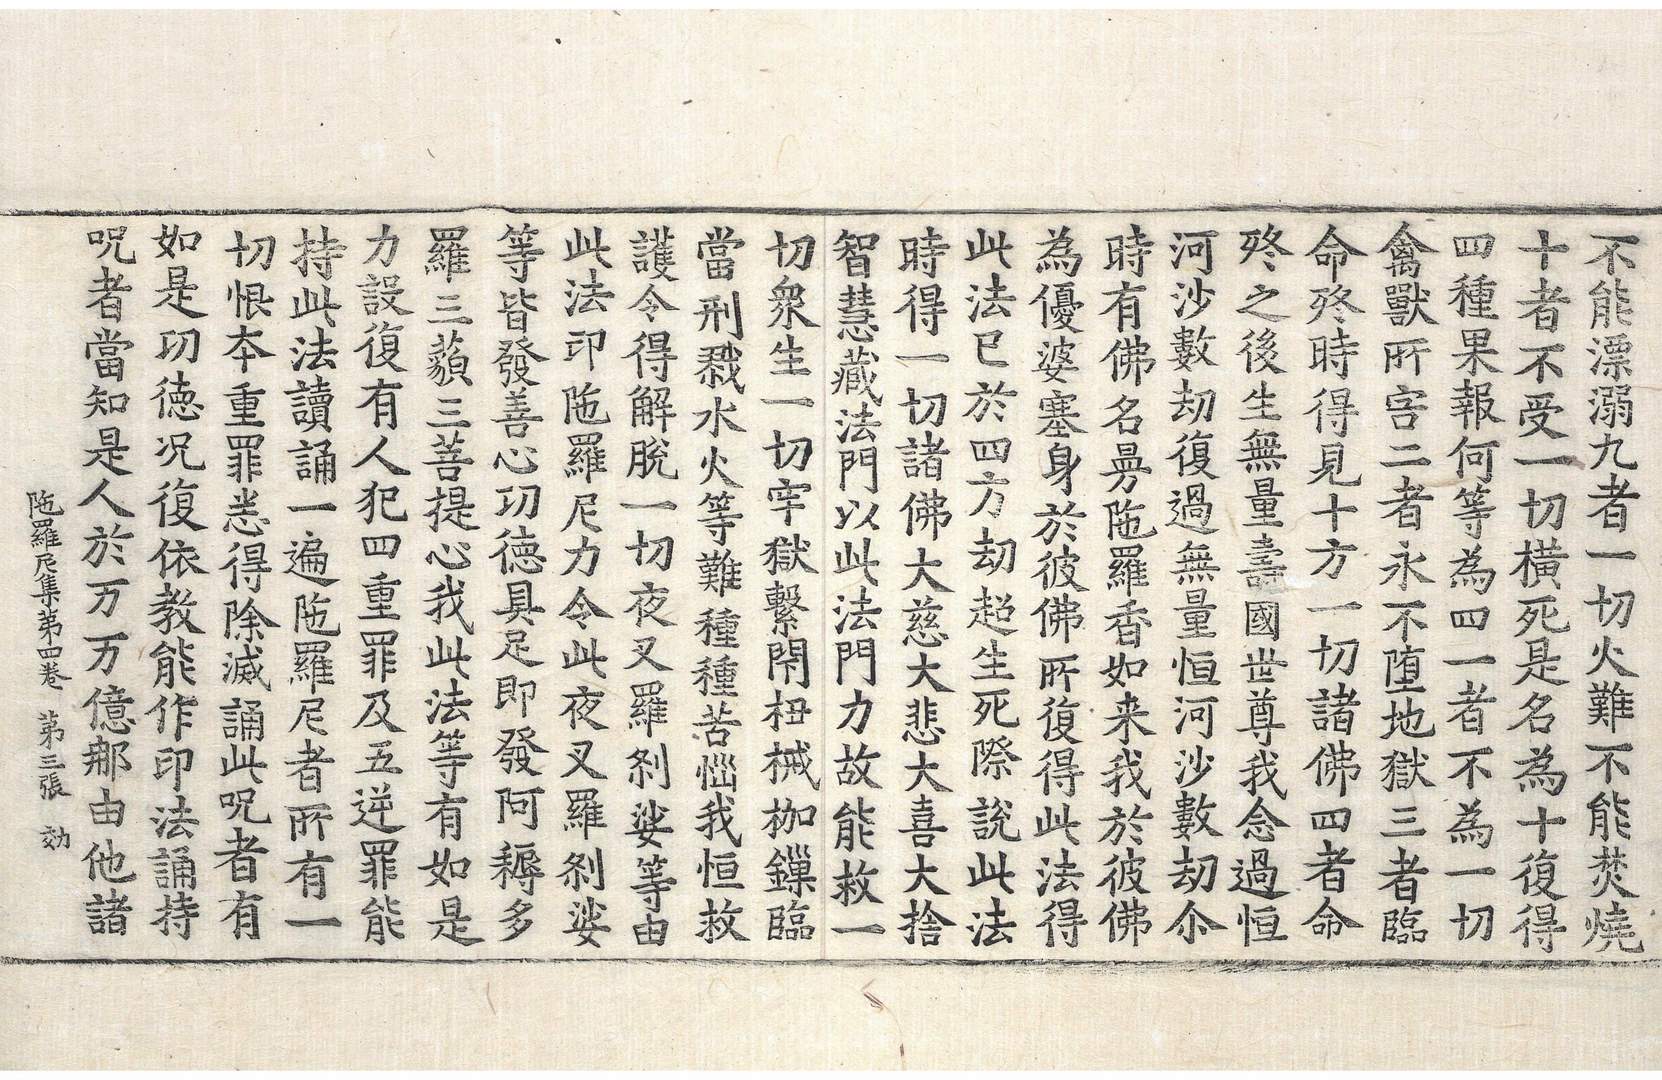 不能漂溺九者一切火難不能焚燒
十者不受一切橫死是名為十復得
四種果報何等為四一者不為一切
禽獸所害二者永不墮地獄三者臨
命終時得見十方一切諸佛四者命
終之後生無量壽國世尊我念過恒
河沙數劫復過無量恒河沙數劫尒
時有佛名曼陁羅香如来我於彼佛
為優婆塞身於彼佛所復得此法得
此法已於四方劫超生死際說此法
時得一切諸佛大慈大悲大喜大捨
智慧藏法門以此法門力故能救一
切衆生一切牢獄繫閇杻械枷鏁臨
當刑戮水火等難種種苦惱我恒救
護令得解脫一切夜叉羅剎娑等由
此法印陁羅尼力令此夜叉羅剎娑
等皆發善心功德具足即發阿耨多
羅三藐三菩提心我此法等有如是
力設復有人犯四重罪及五逆罪能
持此法讀誦一遍陁羅尼者所有一
切恨本重罪悉得除滅誦此呪者有
如是功德况復依教能作印法誦持
呪者當知是人於万万億那由他諸
陁羅尼集第四卷　第三張　効